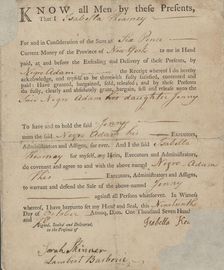 KNOW all Men by these Presents,
That I Isabella Kearney
For and in Consideration of the Sum of Six Pence
Current Money of the Province of New York to me in Hand
paid, at and before the Ensealing and Delivery of these Presents, by
Negro Adam the Receipt whereof I do hereby
acknowledge, and myself to be therewith fully satisfied, contented and
paid: Have granted, bargained, sold, released; and by these Presents
do fully, clearly and absolutely grant, bargain, sell and release unto the
said Negro Adam his daughter Jenny
To have and to hold the said Jenny
unto the said Negro Adam his Executors,
Administrators and Assigns, for ever. And I the said Isabella
Kearney for myself, my Heirs, Executors and Administrators,
do covenant and agree to and with the above named Negro Adam
His Executors, Administrators and Assigns,
to warrant and defend the Sale of the above-named Jenny
against all Persons whatsoever. In Witness
whereof, I have hereunto set my Hand and Seal, this
Day of October Annoq. Dom. One Thousand Seven Hundred
and
Signed, Sealed and Delivered,
in the Presence of
Isabella
Sarah Skinner
Lambert Barberie